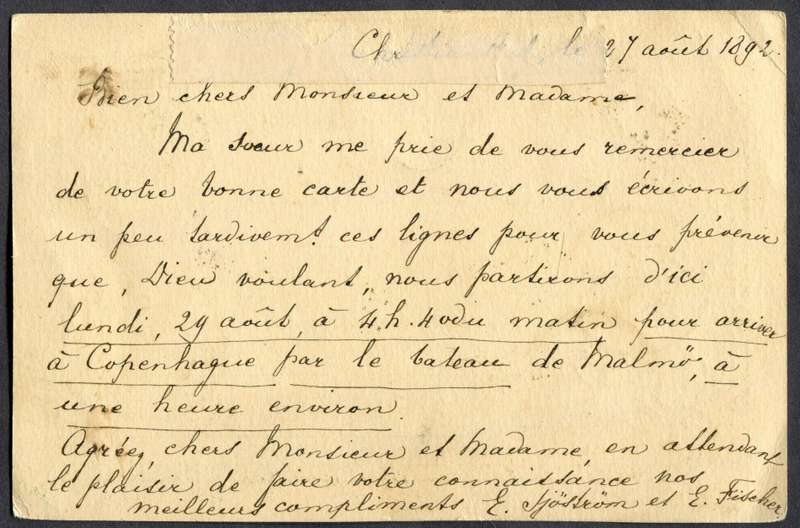 le 27 août 1892.
Bien chers Monsieur et Madame,
Ma sœur me prie de vous remercier
de votre bonne carte et nous vous écrivons
un peu tardivemt. ces lignes pour vous prévenir
que, Dieu voulant, nous partirons d'ici
lundi, 29 août, à 4 h. 40 du matin pour arriver
à Copenhague par le bateau de Malmö, à
une heure environ.
Agréez, chers Monsieur et Madame, en attendant
le plaisir de faire votre connaissance nos
meilleurs compliments E. Sjöström et E. Fischer